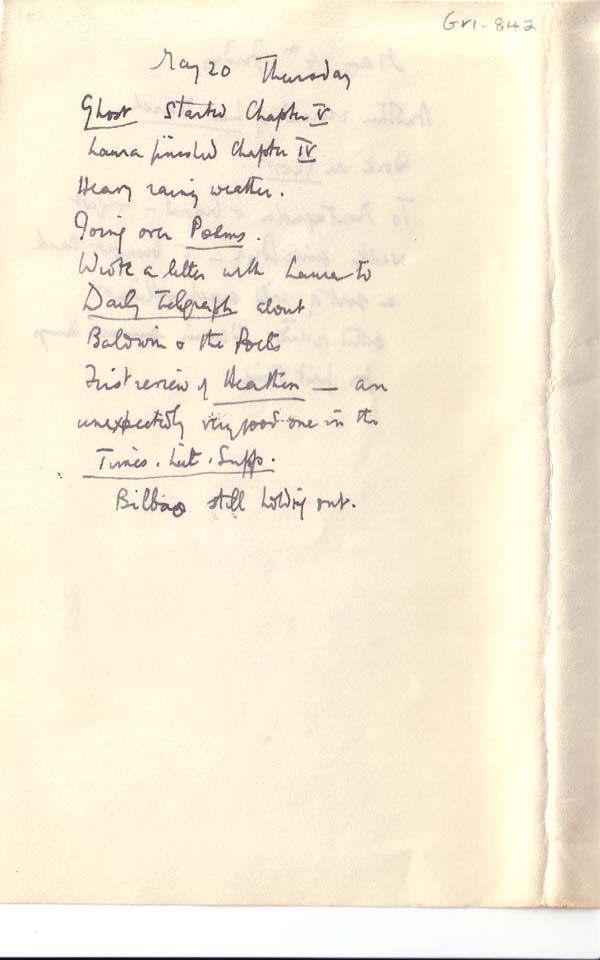 GRI-842
May 20 Thursday
Ghost Started Chapter V
Laura finished Chapter IV
Heavy rainy weather.
Going over Poems.
Wrote a letter with Laura to
Daily Telegraph about
Baldwin & the Poets
First review of Heathen — an
unexpectedly very good one in the
Times. Lit. Supp.
Bilbao still holding out.